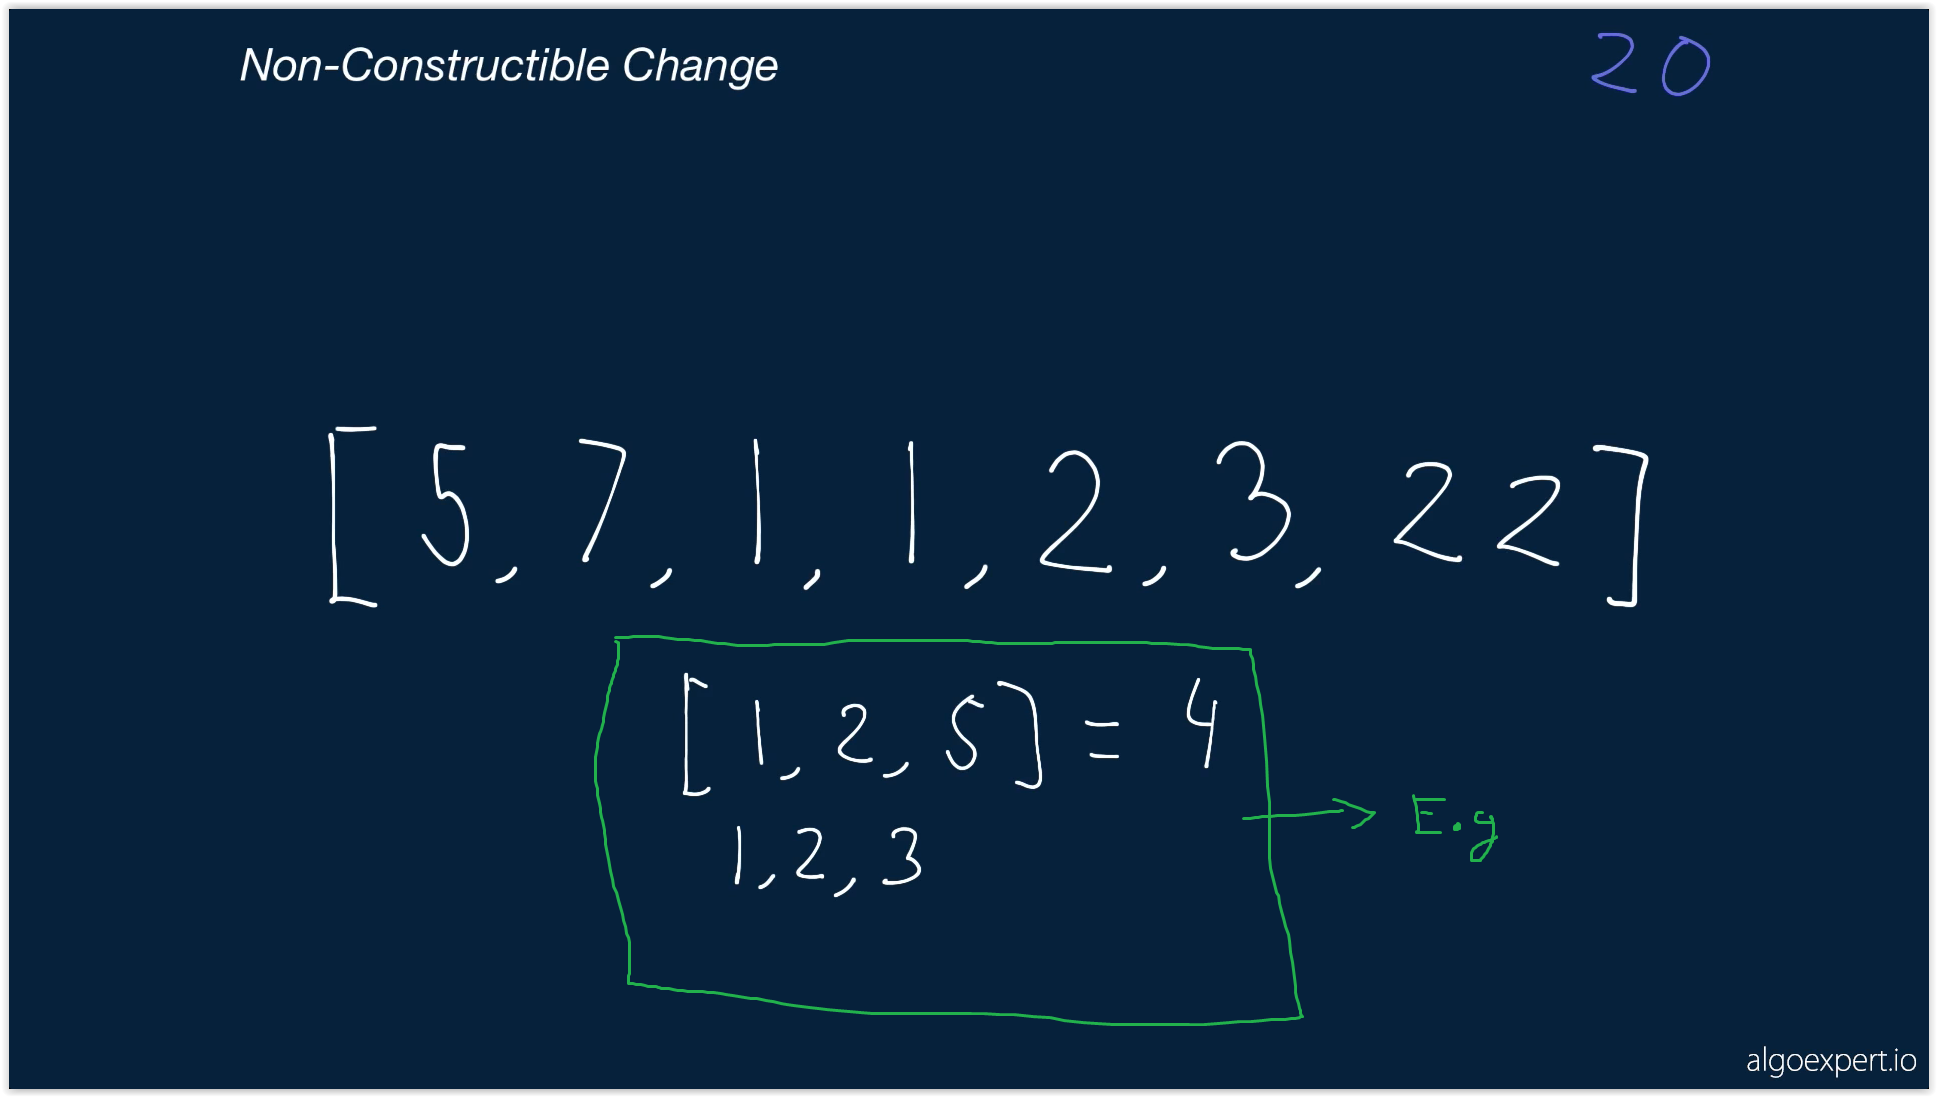 Non-Constructible Change
20
[5, 7, 1, 1, 2, 3, 22]
[1, 2, 5] = 4
1, 2, 3
E.g
algoexpert.io